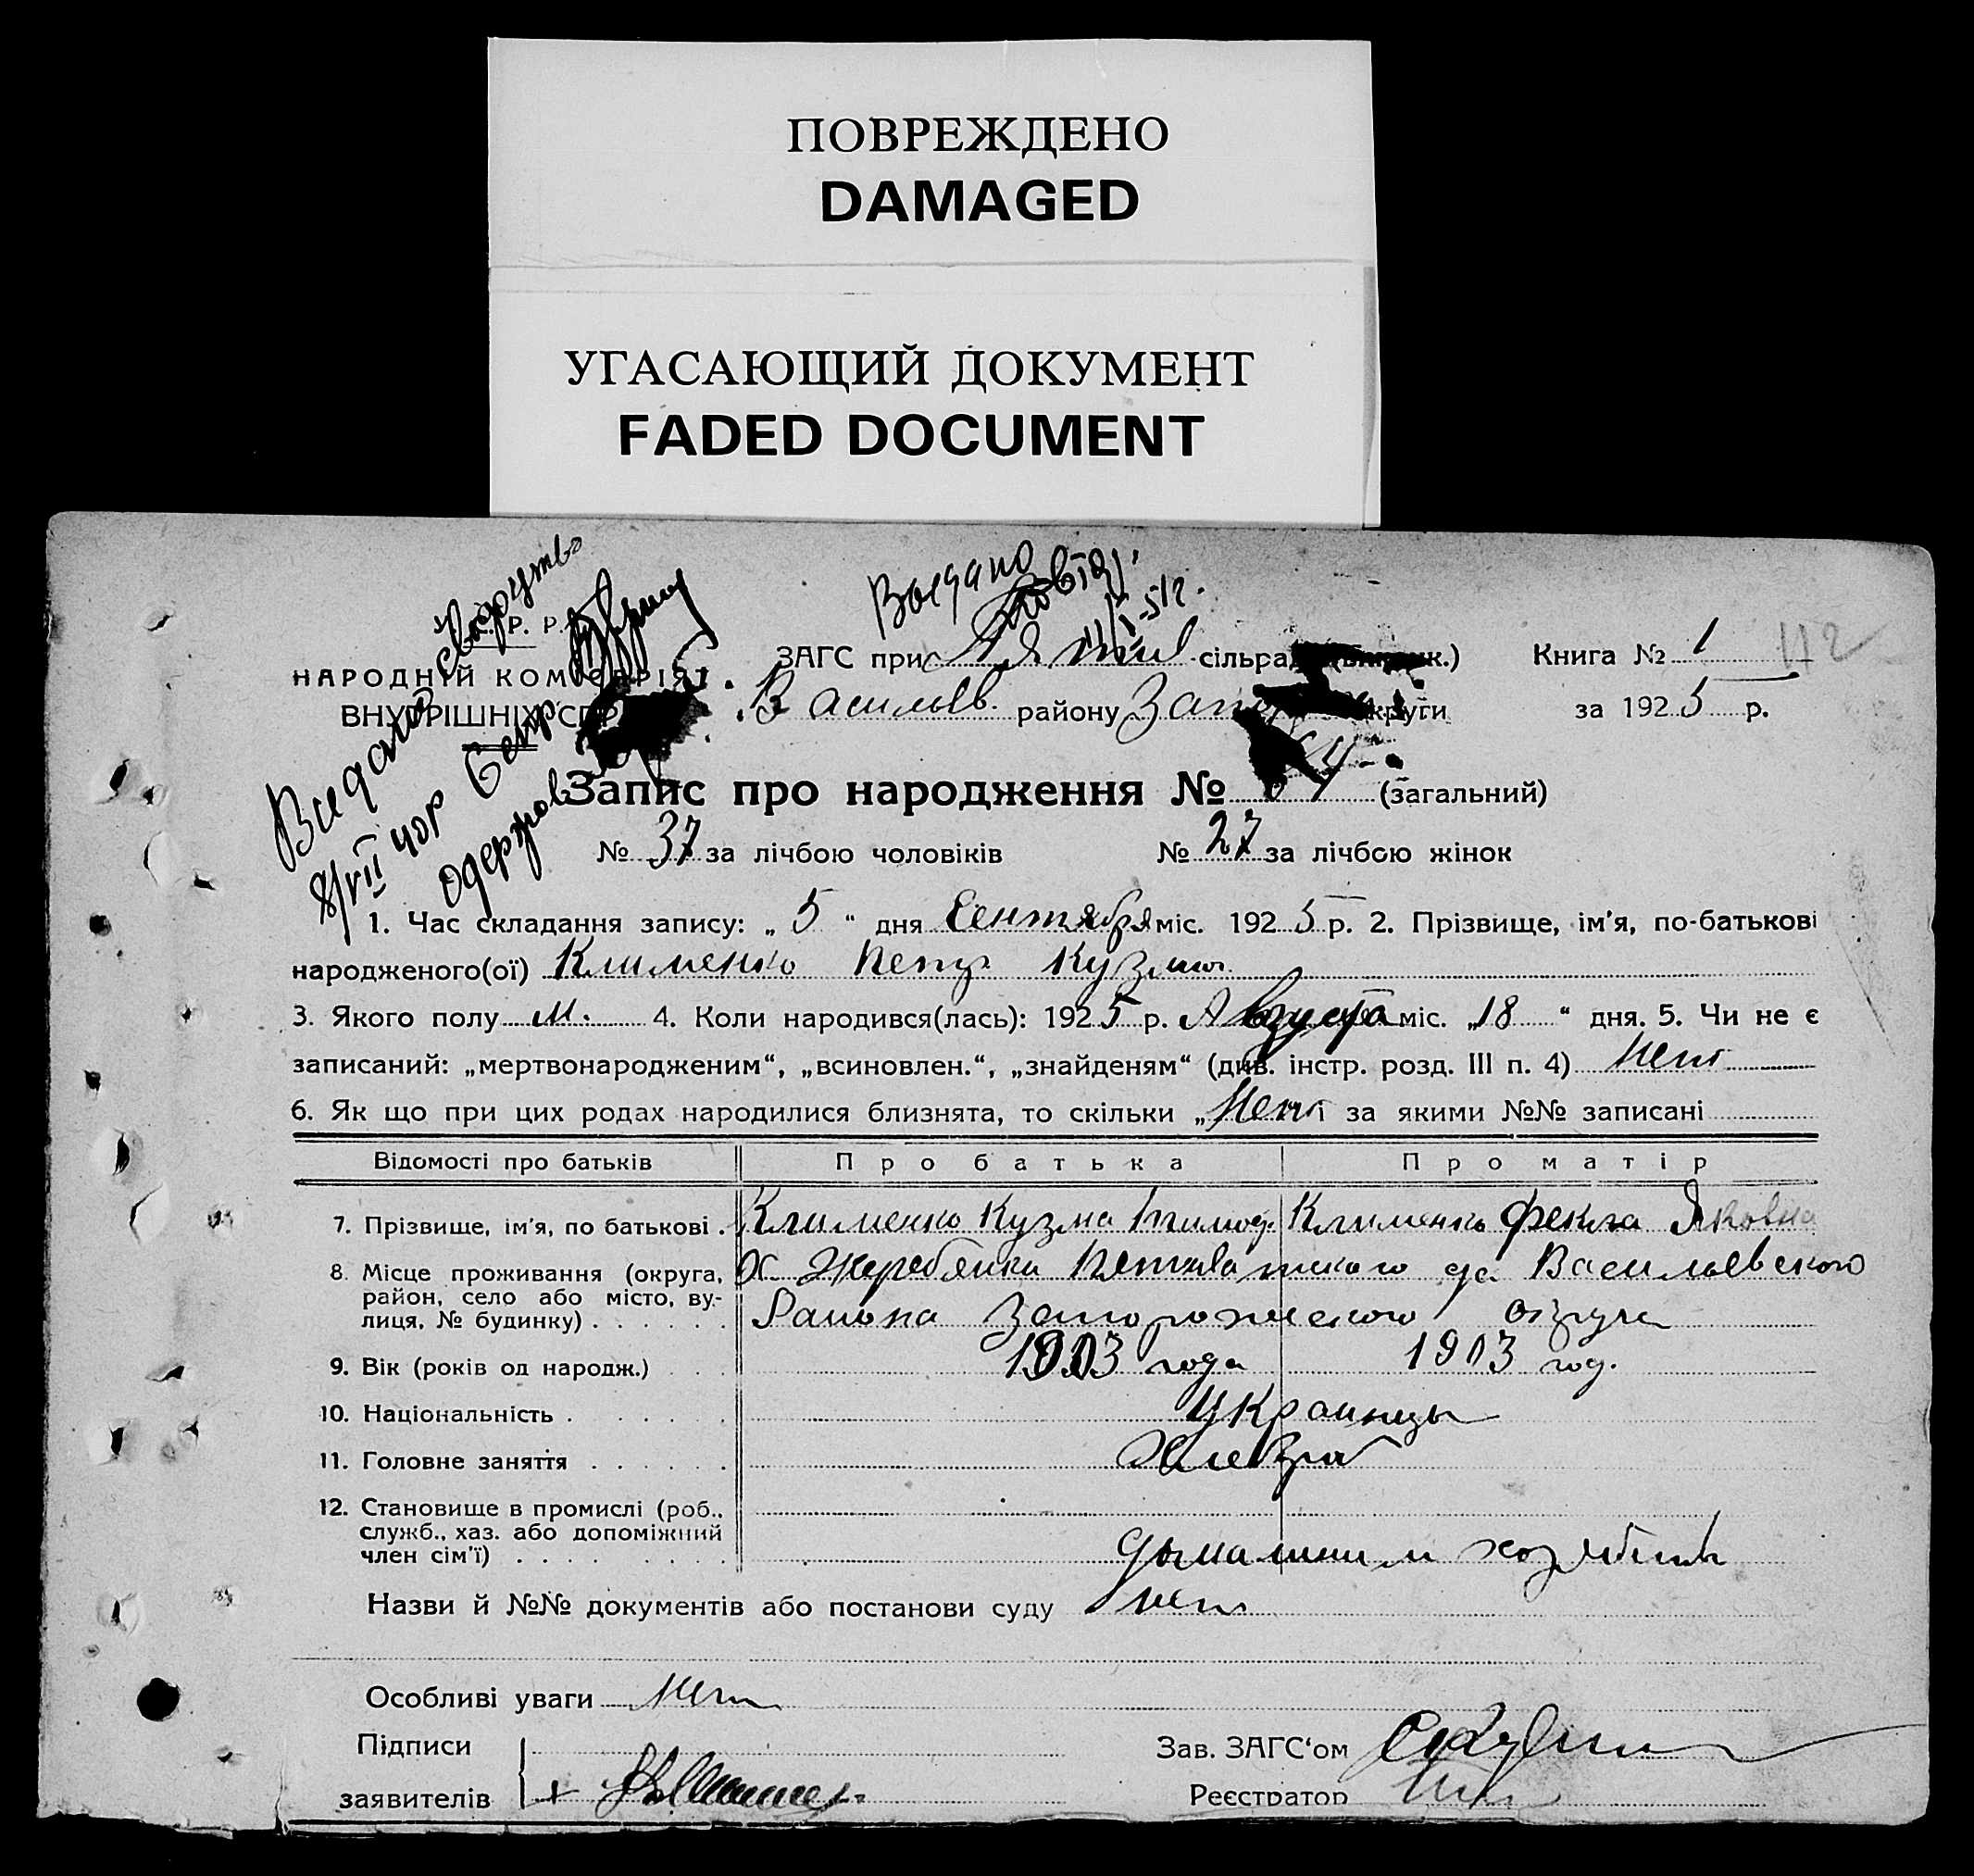 ПОВРЕЖДЕНО
DAMAGED
УГАСАЮЩИЙ ДОКУМЕНТ
FADED DOCUMENT
Выдано
НАРОДНІЙ КОМІСАРІЯТ
ВНУТРІШНІХ СПР
ЗАГС при сільради
Книга № 1
112
Васильев. району Запор округи
за 1925 р.
Видано
8/VII
Запис про народження № 64 (загальний)
№ 37 за лічбою чоловіків № 27 за лічбою жінок
1. Час складання запису: „ 5 “ дня Сентября міс. 1925 р. 2. Прізвище, ім'я, по-батькові
народженого(ої) Клименко Петр Кузмич
3. Якого полу м. 4. Коли народився(лась): 1925 р. Августа міс. „18 “ дня. 5. Чи не є
записаний: „мертвонародженим“, „всиновлен.“, „знайденям“ (див. інстр. розд. III п. 4) Нет
6. Як що при цих родах народилися близнята, то скільки „Нет і за якими №№ записані
Відомості про батьків Про батька Про матір
7. Прізвище, ім'я, по батькові . Клименко Кузма Тимоф. Клименко Фекла Яковна
8. Місце проживання (округа, район, село або місто, ву-
лиця, № будинку) Х Жеребянки Васильевского
Района Запорожского округа
9. Вік (років од народж.) 1903 года 1903 год.
10. Національність . украинцы
11. Головне заняття
12. Становище в промислі (роб.,
служб., хаз. або допоміжний
член сім'ї) домашним
Назви й №№ документів або постанови суду нет
Особливі уваги Нет
Підписи
заявителів
Зав. ЗАГС‘ом
Реєстратор